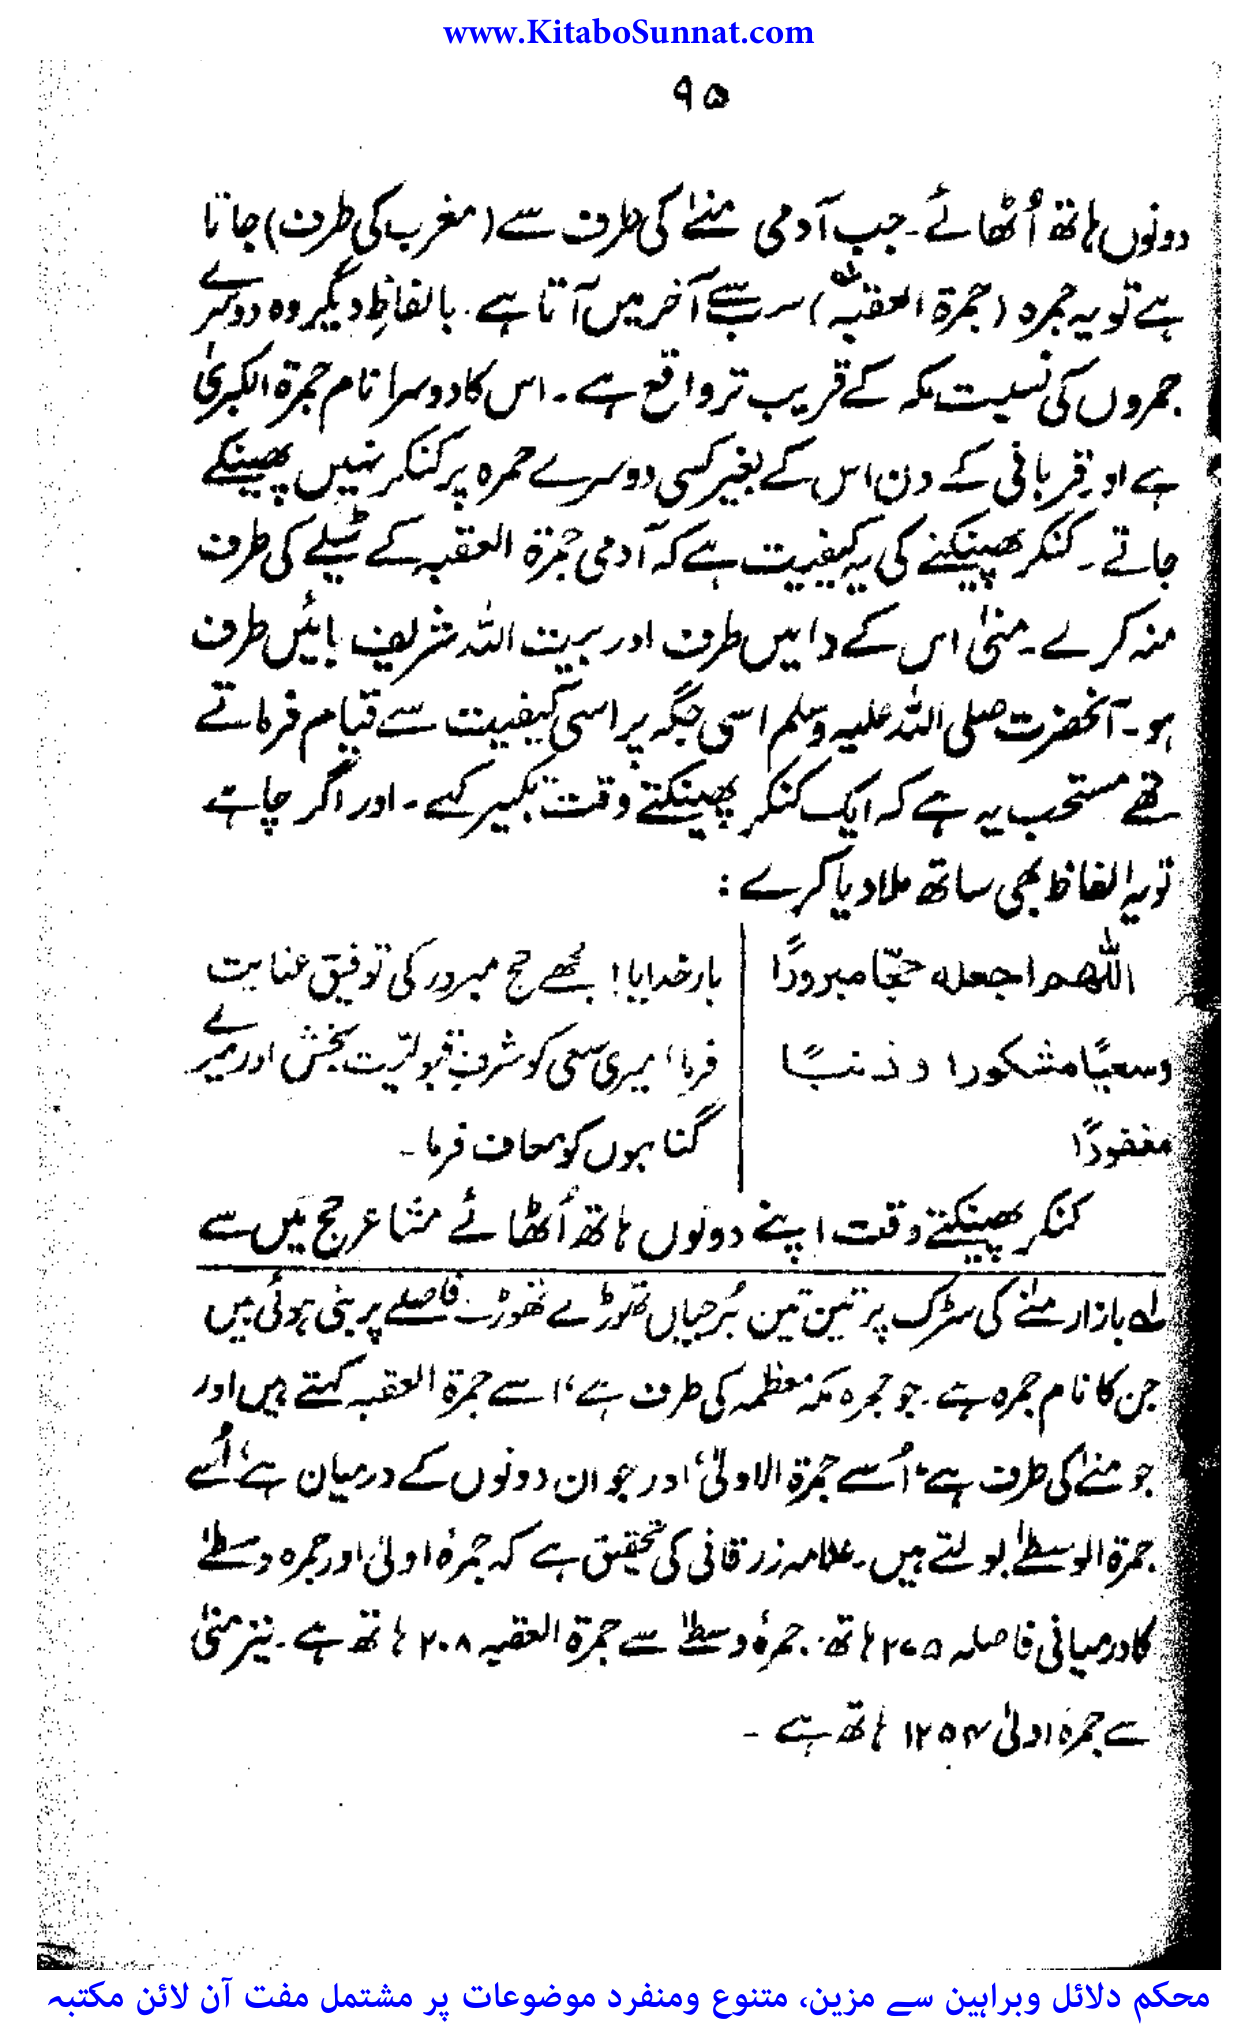 www.KitaboSunnat.com
۹۵
دونوں ہاتھ اُٹھائے۔ جب آدمی منےٰ کی طرف سے (مغرب کی طرف) جاتا
ہے تو یہ جمرہ (جمرۃ العقبہ ؂۱) سب سے آخر میں آتا ہے۔ بالفاظِ دیگر وہ دوسرے
جمروں کی نسبت مکہ کے قریب تر واقع ہے۔ اس کا دوسرا نام جمرۃ الکبریٰ
ہے اور قربانی کے دن اس کے بغیر کسی دوسرے جمرہ پر کنکر نہیں پھینکے
جاتے۔ کنکر پھینکنے کی یہ کیفیت ہے کہ آدمی جمرۃ العقبہ کے ٹیلے کی طرف
منہ کرے۔ منیٰ اس کے دائیں طرف اور بیت اللہ شریف بائیں طرف
ہو۔ آنحضرت صلی اللہ علیہ وسلم اسی جگہ پر اسی کیفیت سے قیام فرماتے
تھے مستحب یہ ہے کہ ایک کنکر پھینکتے وقت تکبیر کہے۔ اور اگر چاہے
تو یہ الفاظ بھی ساتھ ملا دیا کرے :
اللھم اجعلہ حجّا مبرورًا
وسعیًا مشکورا و ذنبًا
مغفورًا
بار خدایا! مجھے حج مبرور کی توفیق عنایت
فرما، میری سعی کو شرفِ قبولیّت بخش اور میرے
گناہوں کو معاف فرما۔
کنکر پھینکتے وقت اپنے دونوں ہاتھ اُٹھائے مشاعر حج میں سے
؂۱ بازار منےٰ کی سڑک پر تین تین بُرجیاں تھوڑے تھوڑے فاصلے پر بنی ہوئی ہیں
جن کا نام جمرہ ہے۔ جو جمرہ مکہ معظمہ کی طرف ہے، اسے جمرۃ العقبہ کہتے ہیں اور
جو منےٰ کی طرف ہے، اُسے جمرۃ الاولیٰ، اور جو ان دونوں کے درمیان ہے، اُسے
جمرۃ الوسطےٰ بولتے ہیں۔ علامہ زرقانی کی تحقیق ہے کہ جمرۂ اولیٰ اور جمرہ وسطےٰ
کا درمیانی فاصلہ ہاتھ۔ جمرۂ وسطےٰ سے جمرۃ العقبہ ۲۰۸ ہاتھ ہے۔ نیز منیٰ
سے جمرہ اولیٰ ۱۲۵۴ ہاتھ ہے۔
محکم دلائل وبراہین سے مزین، متنوع ومنفرد موضوعات پر مشتمل مفت آن لائن مکتبہ